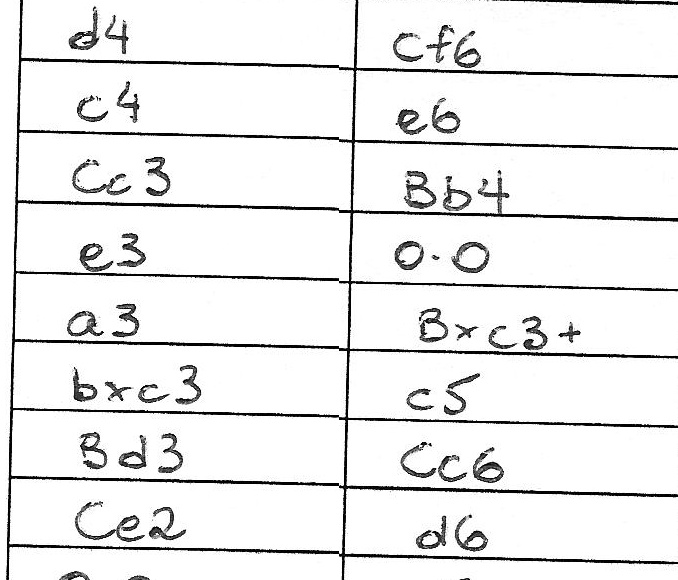 d4 Cf6
c4 e6
Cc3 Bb4
e3 0.0
a3 Bxc3+
bxc3 c5
Bd3 Cc6
Ce2 d6